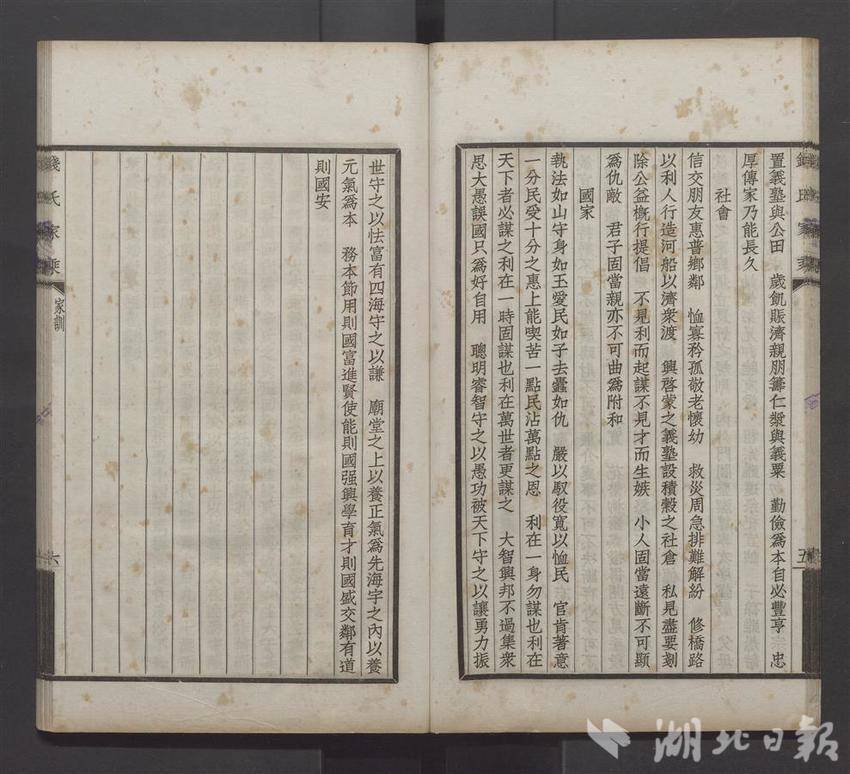 置義塾與公田　歲飢賑濟親朋籌仁漿與義粟　勤儉爲本自必豐亨　忠
厚傳家乃能長久
社會
信交朋友惠普鄉鄰　恤寡矜孤敬老懷幼　救災周急排難解紛　修橋路
以利人行造河船以濟衆渡　興啓蒙之義塾設積穀之社倉　私見盡要刬
除公益概行提倡　不見利而起謀不見才而生嫉　小人固當遠斷不可顯
爲仇敵　君子固當親亦不可曲爲附和
國家
執法如山守身如玉愛民如子去蠹如仇　嚴以馭役寬以恤民　官肯著意
一分民受十分之惠上能喫苦一點民沾萬點之恩　利在一身勿謀也利在
天下者必謀之利在一時固謀也利在萬世者更謀之　大智興邦不過集衆
思大愚誤國只爲好自用　聰明睿智守之以愚功被天下守之以讓勇力振
五
世守之以怯富有四海守之以謙　廟堂之上以養正氣爲先海宇之內以養
元氣爲本　務本節用則國富進賢使能則國强興學育才則國盛交鄰有道
則國安
錢氏家乘
家訓
六
湖北日報